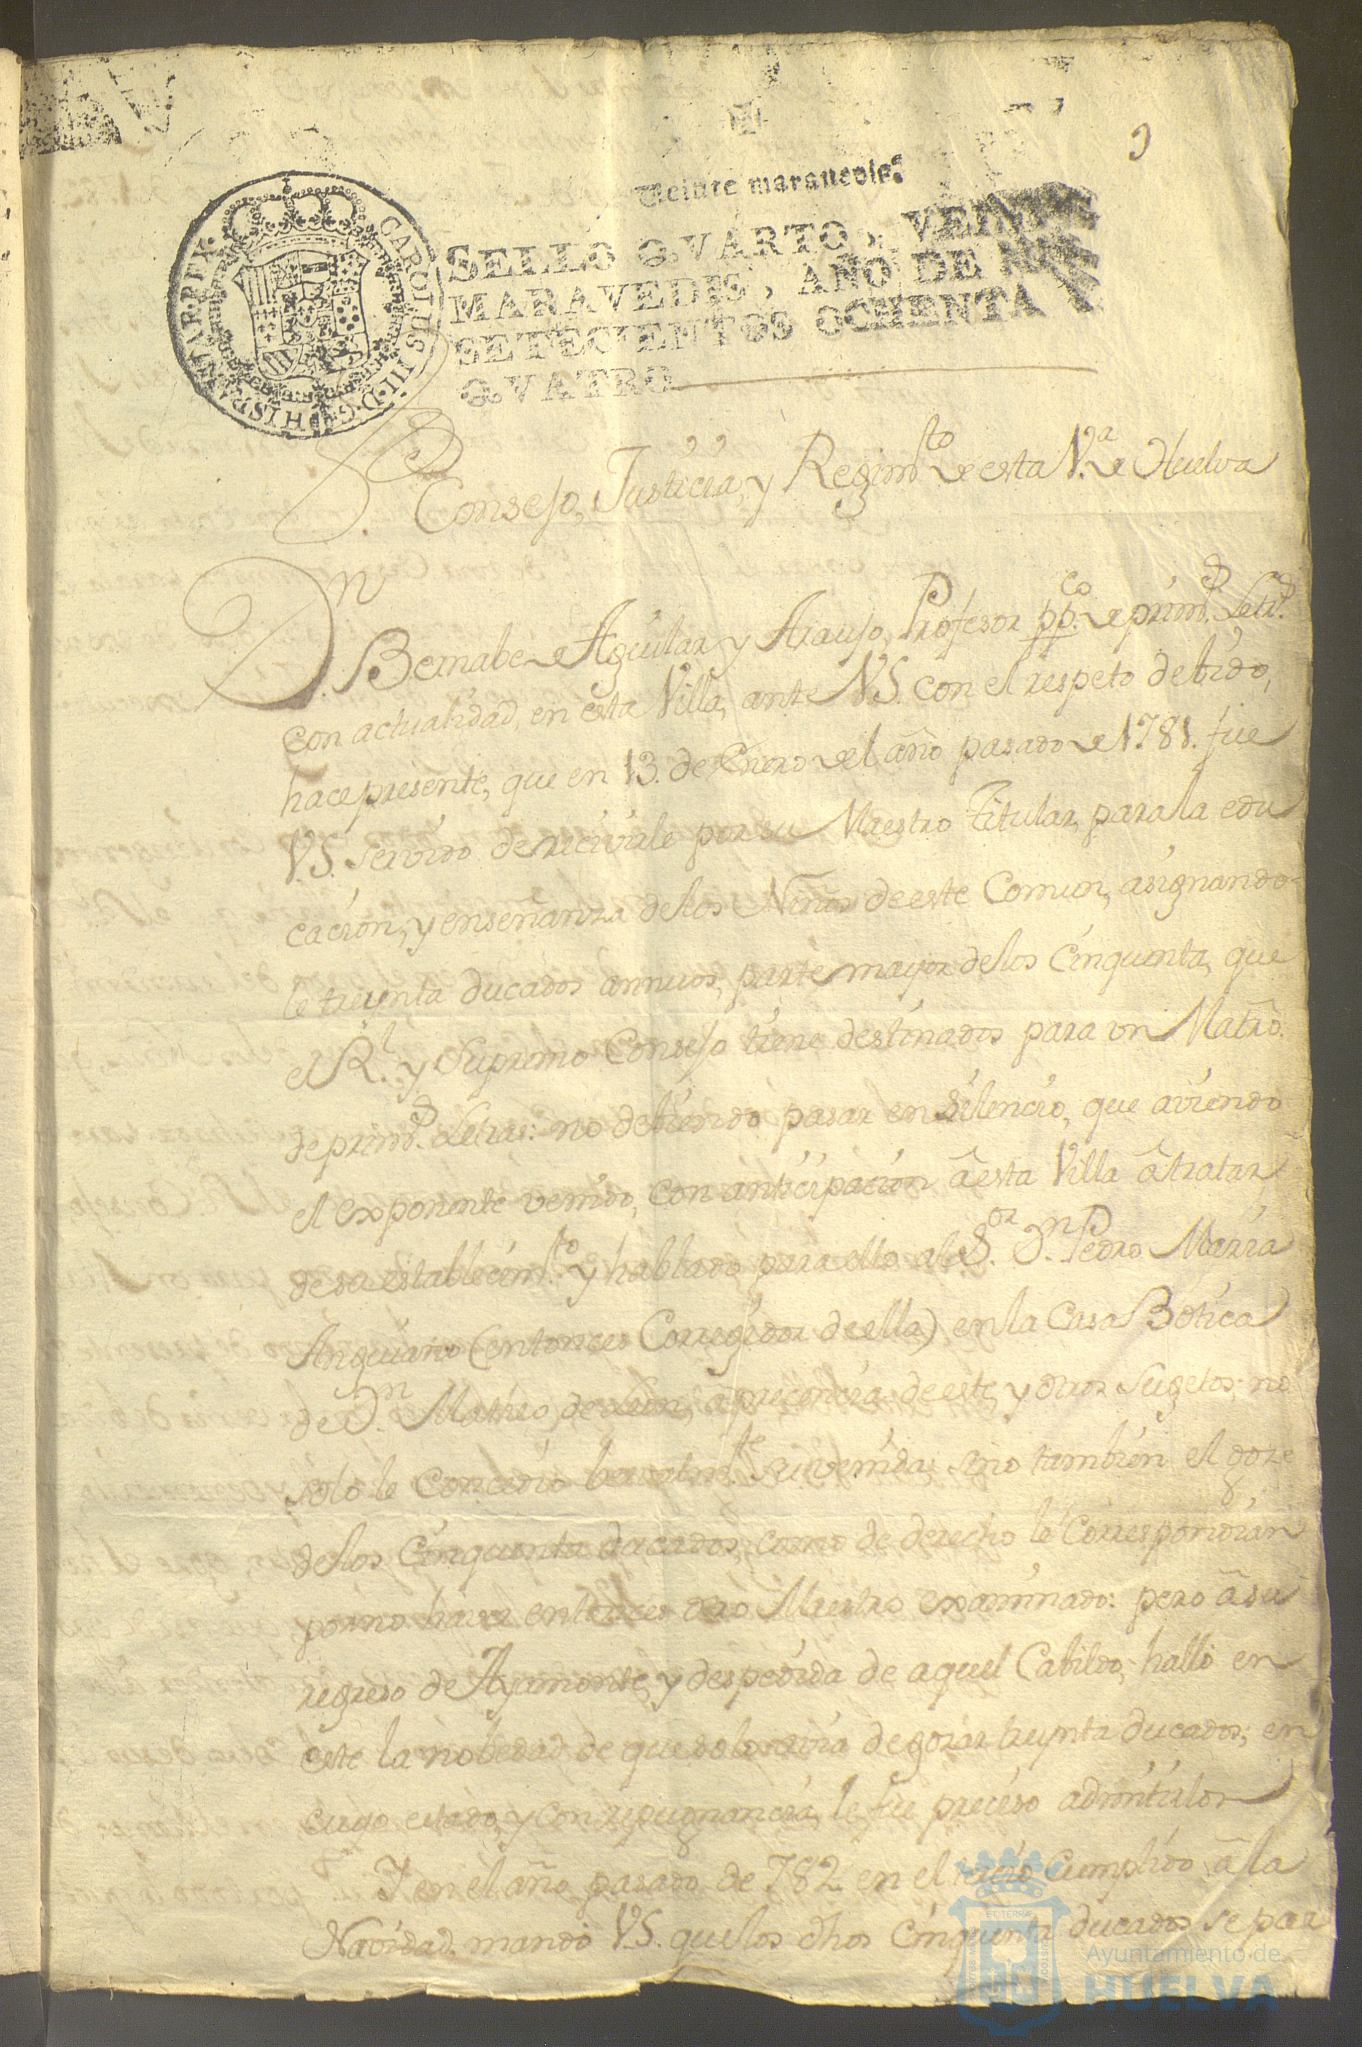 9
Veinte maravedis.
SELLO QVARTO, VEINTE
MARAVEDIS, AÑO DE MIL
SETECIENTOS OCHENTA Y
QVATRO
CAROLUS III D.G. HISPANIAR. REX.
Consejo, Justicia, y Regim.to de esta V.a de Huelva
Dn. Bernabe de Aguilar y Araujo, Profesor pp.co de prim.s Letr.s
con actualidad, en esta Villa, ante V.S. con el respeto debido,
hace presente, que en 13. de Enero del año pasado de 1781. fue
V.S. servido de recivirle por su Maestro Titular, para la edu
cacion, y enseñanza de los Niños de este Comun, asignando-
le treinta ducados annuos, parte mayor de los Cinquenta, que
el R.l y Supremo Consejo tiene destinados para un Maẽtro.
de prim.s Letras: no debiendo pasar en silencio, que aviendo
el exponente venido, con anticipacion â esta Villa â tratar
de su establecim.to y hablado para ello al S.or Dn. Pedro Maria
Anguiano (entonces Corregidor de ella) en la Casa Botica
de Dn. Matheo de Leon, a precencia de este, y otros Sugetos; no
solo le concedio su venida, sino tambien el goze
de los Cinquenta ducados, como de derecho le correspondian
por no haver entonces otro Maestro examinado: pero â su
regreso de Ayamonte, y despedida de aquel Cabildo, hallo en
este la nobedad de que solo avia de gozar treynta ducados; en
cuyo estado, y con repugnancia, le fue preciso admitirlos
Y en el año pasado de 782 en el tercio Cumplido â la
Navidad, mando V.S. que los dhos Cinquenta ducados se par
Ayuntamiento de
HUELVA